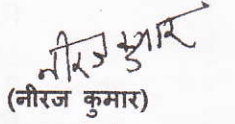 नीरज कुमार
(नीरज कुमार)